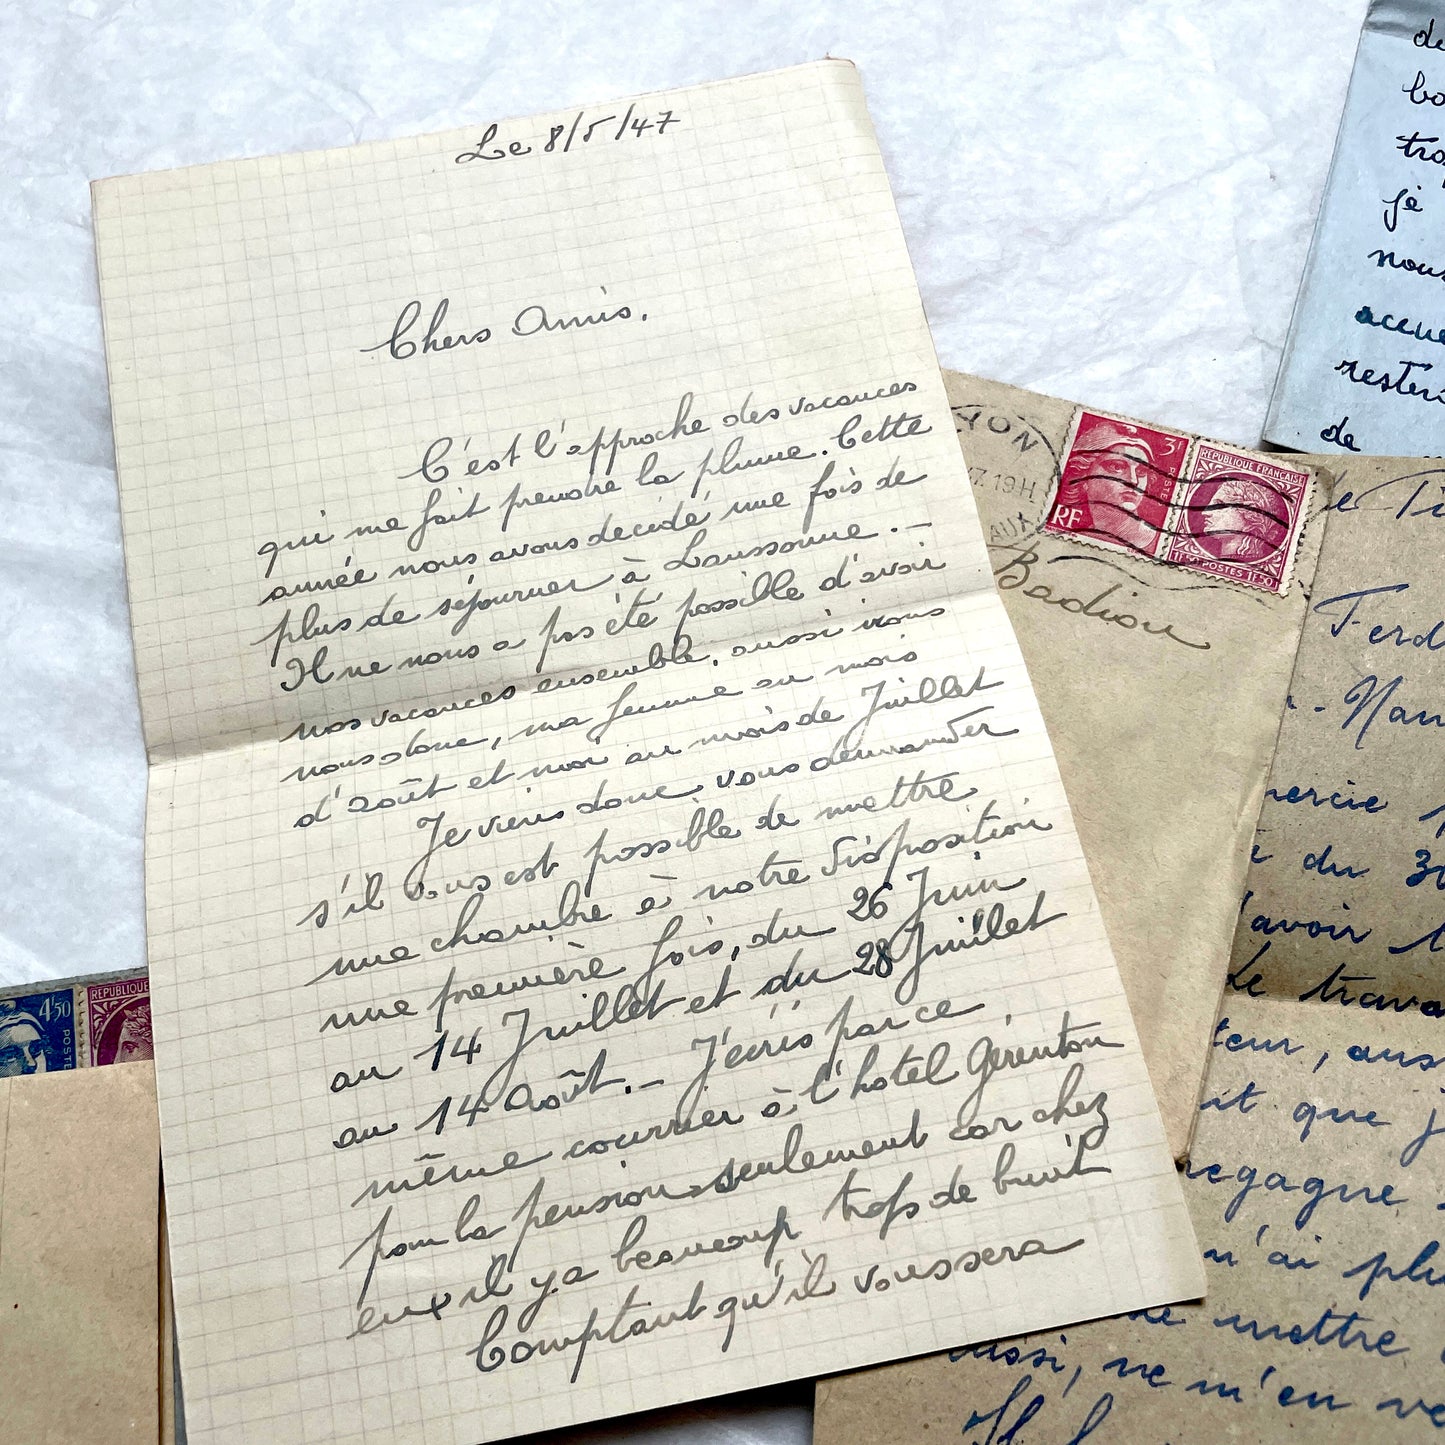 Le 8/5/47
Chers Amis.
C'est l'approche des vacances
qui me fait prendre la plume. Cette
année nous avons decidé une fois de
plus de séjourner à Laussonne. –
Il ne nous a pas été possible d'avoir
nos vacances ensemble. aussi irons
nous donc, ma femme au mois
d'août et moi au mois de Juillet
Je viens donc vous demander
s'il vous est possible de mettre
une chambre à notre disposition
une première fois, du 26 Juin
au 14 Juillet et du 28 Juillet
au 14 Août. – J'écris par ce
même courrier à l'hotel Gérenton
pour la pension seulement car chez
eux il y a beaucoup trop de bruit
Comptant qu'il vous sera
YON
19H
AUX
3F
POSTES
RF
REPUBLIQUE FRANÇAISE
1F50 POSTES 1F50
Badiou
4F50
POSTES
REPUBLIQUE
je
nous
de
Ferd
du 30
avoir
Le trava
teur, auss
it que j
regagne
n'ai plu
ne mettre
aussi, ne m'en ve
Il